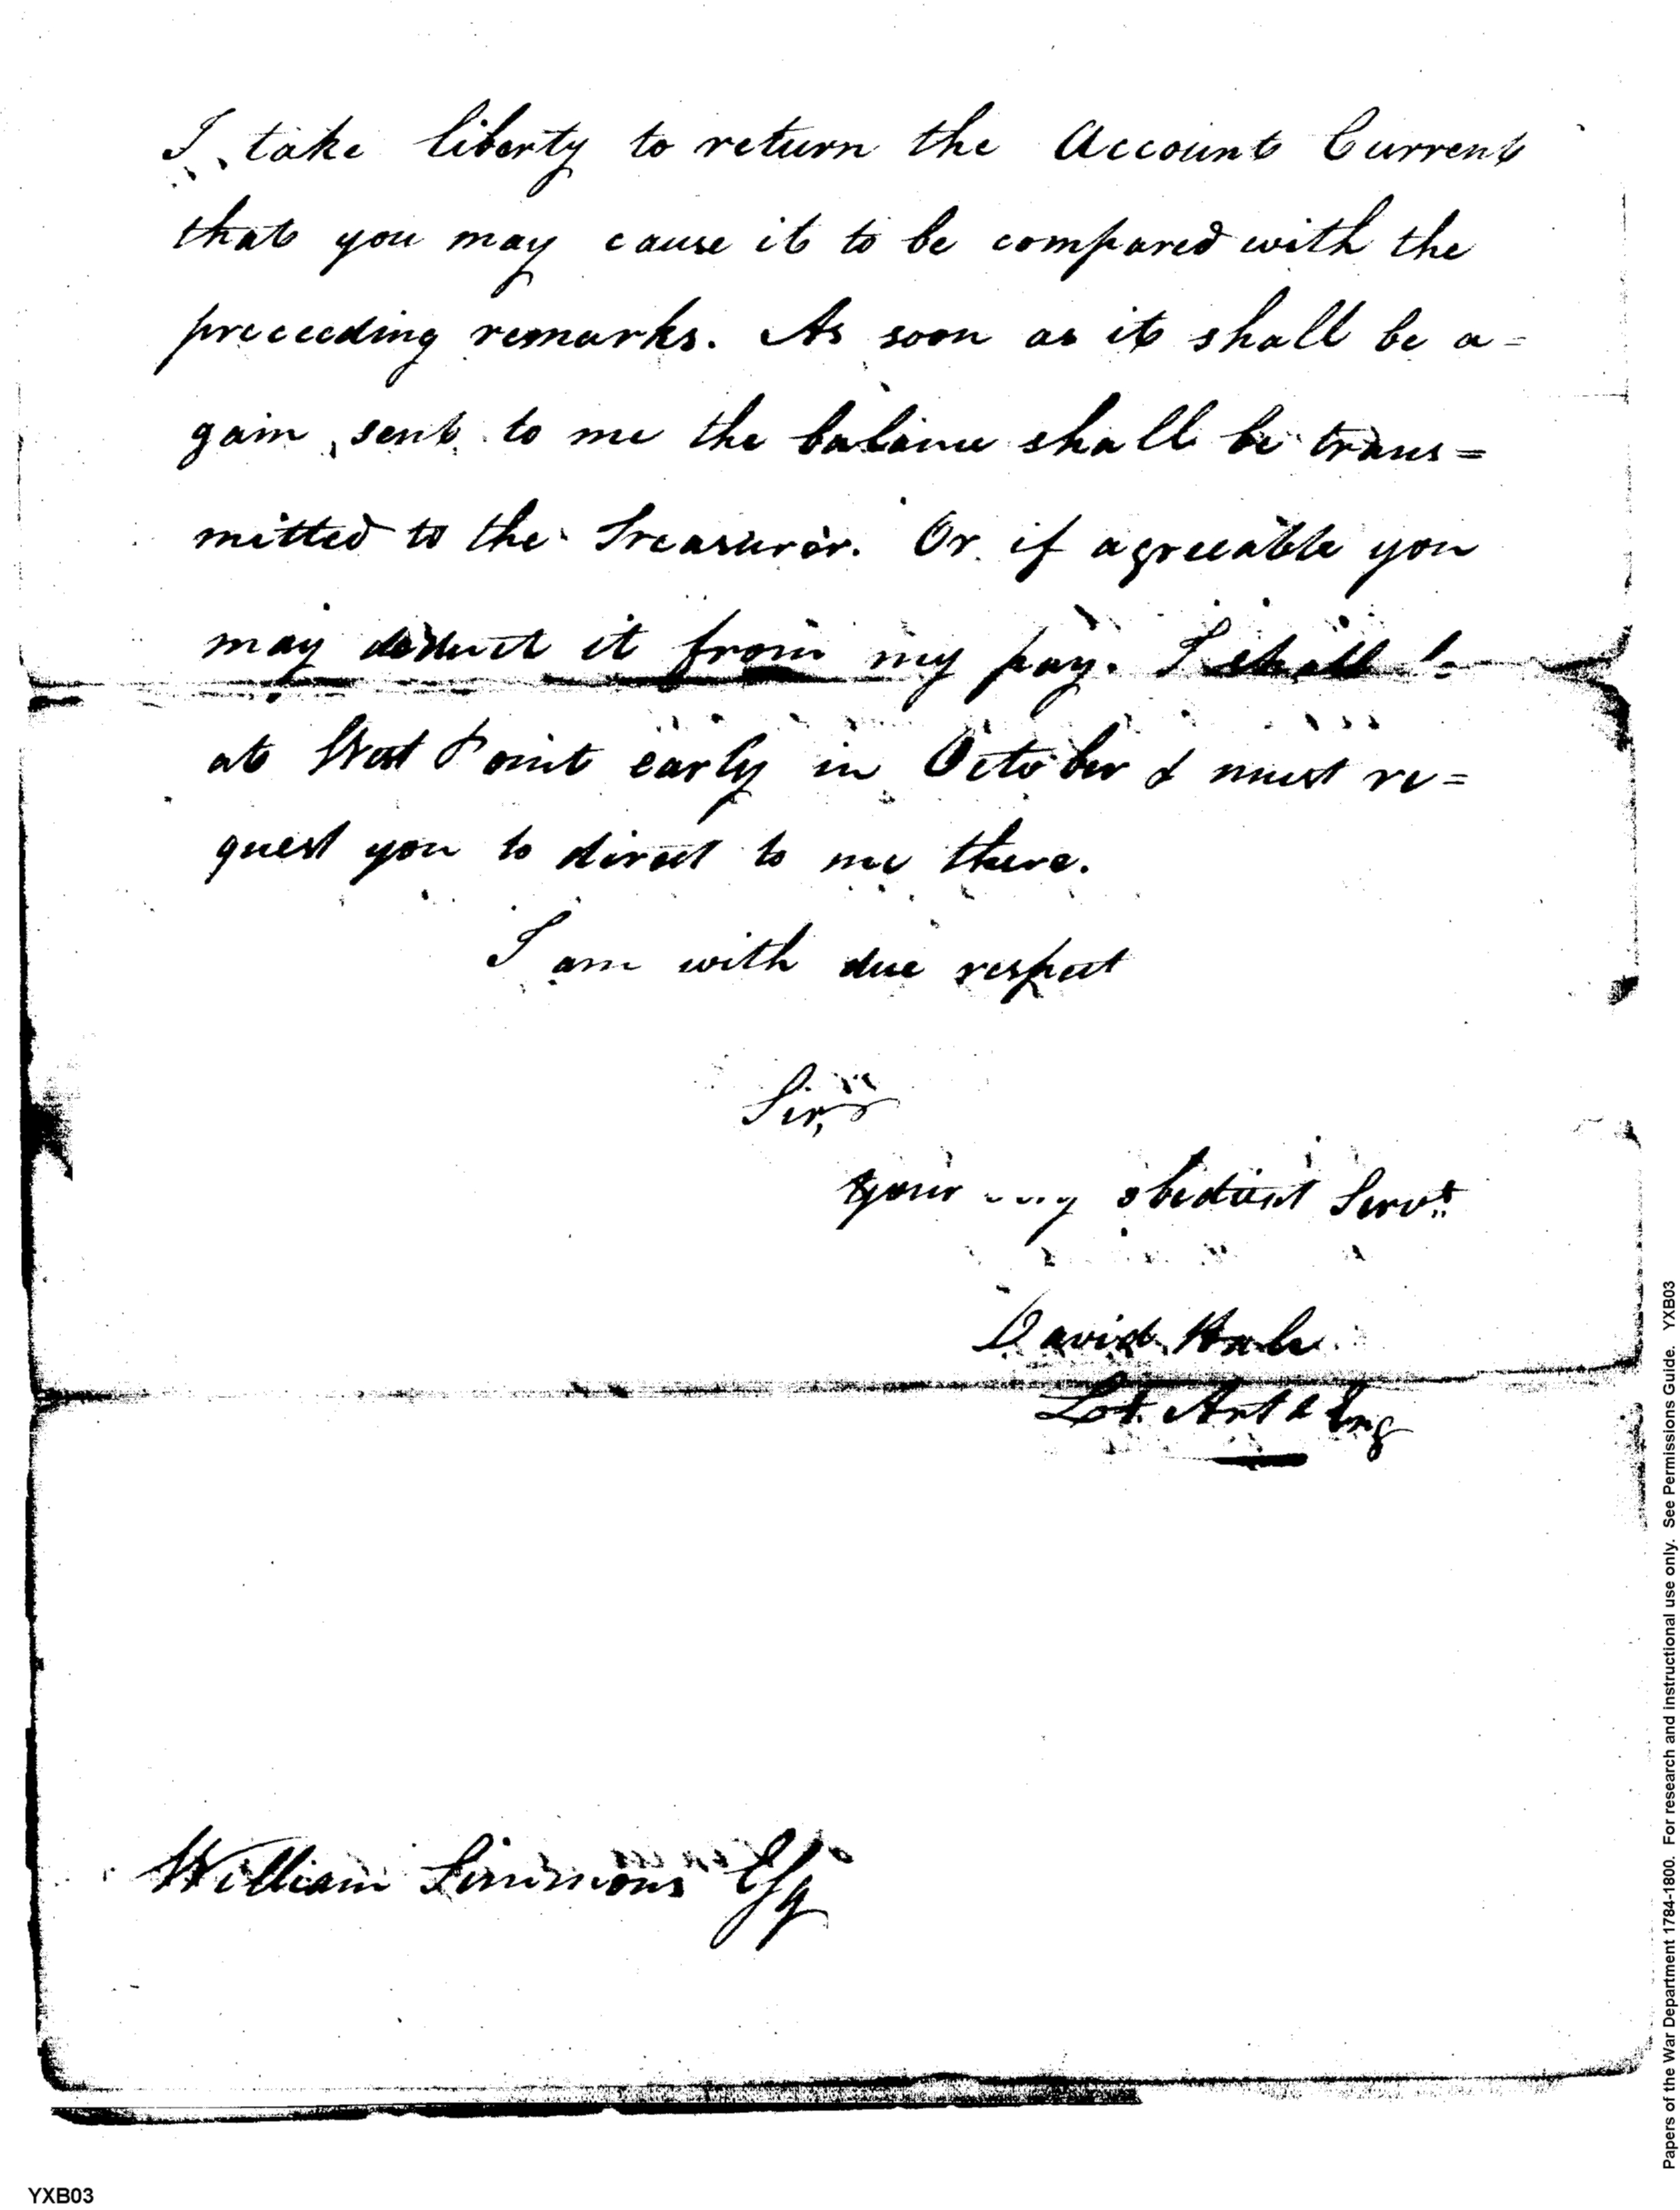 I take liberty to return the Account Current
that you may cause it to be compared with the
preceeding remarks. As soon as it shall be a=
gain sent to me the balance shall be trans=
mitted to the Treasurer. Or if agreeable you
may deduct it from my pay. I shall
at West Point early in October & must re=
quest you to direct to me there.
I am with due respect
Sir,
Your obedient Servt
David Hale
Lt. Art & Eng
William Simmons Esq
Papers of the War Department 1784-1800. For research and instructional use only. See Permissions Guide. YXB03
YXB03